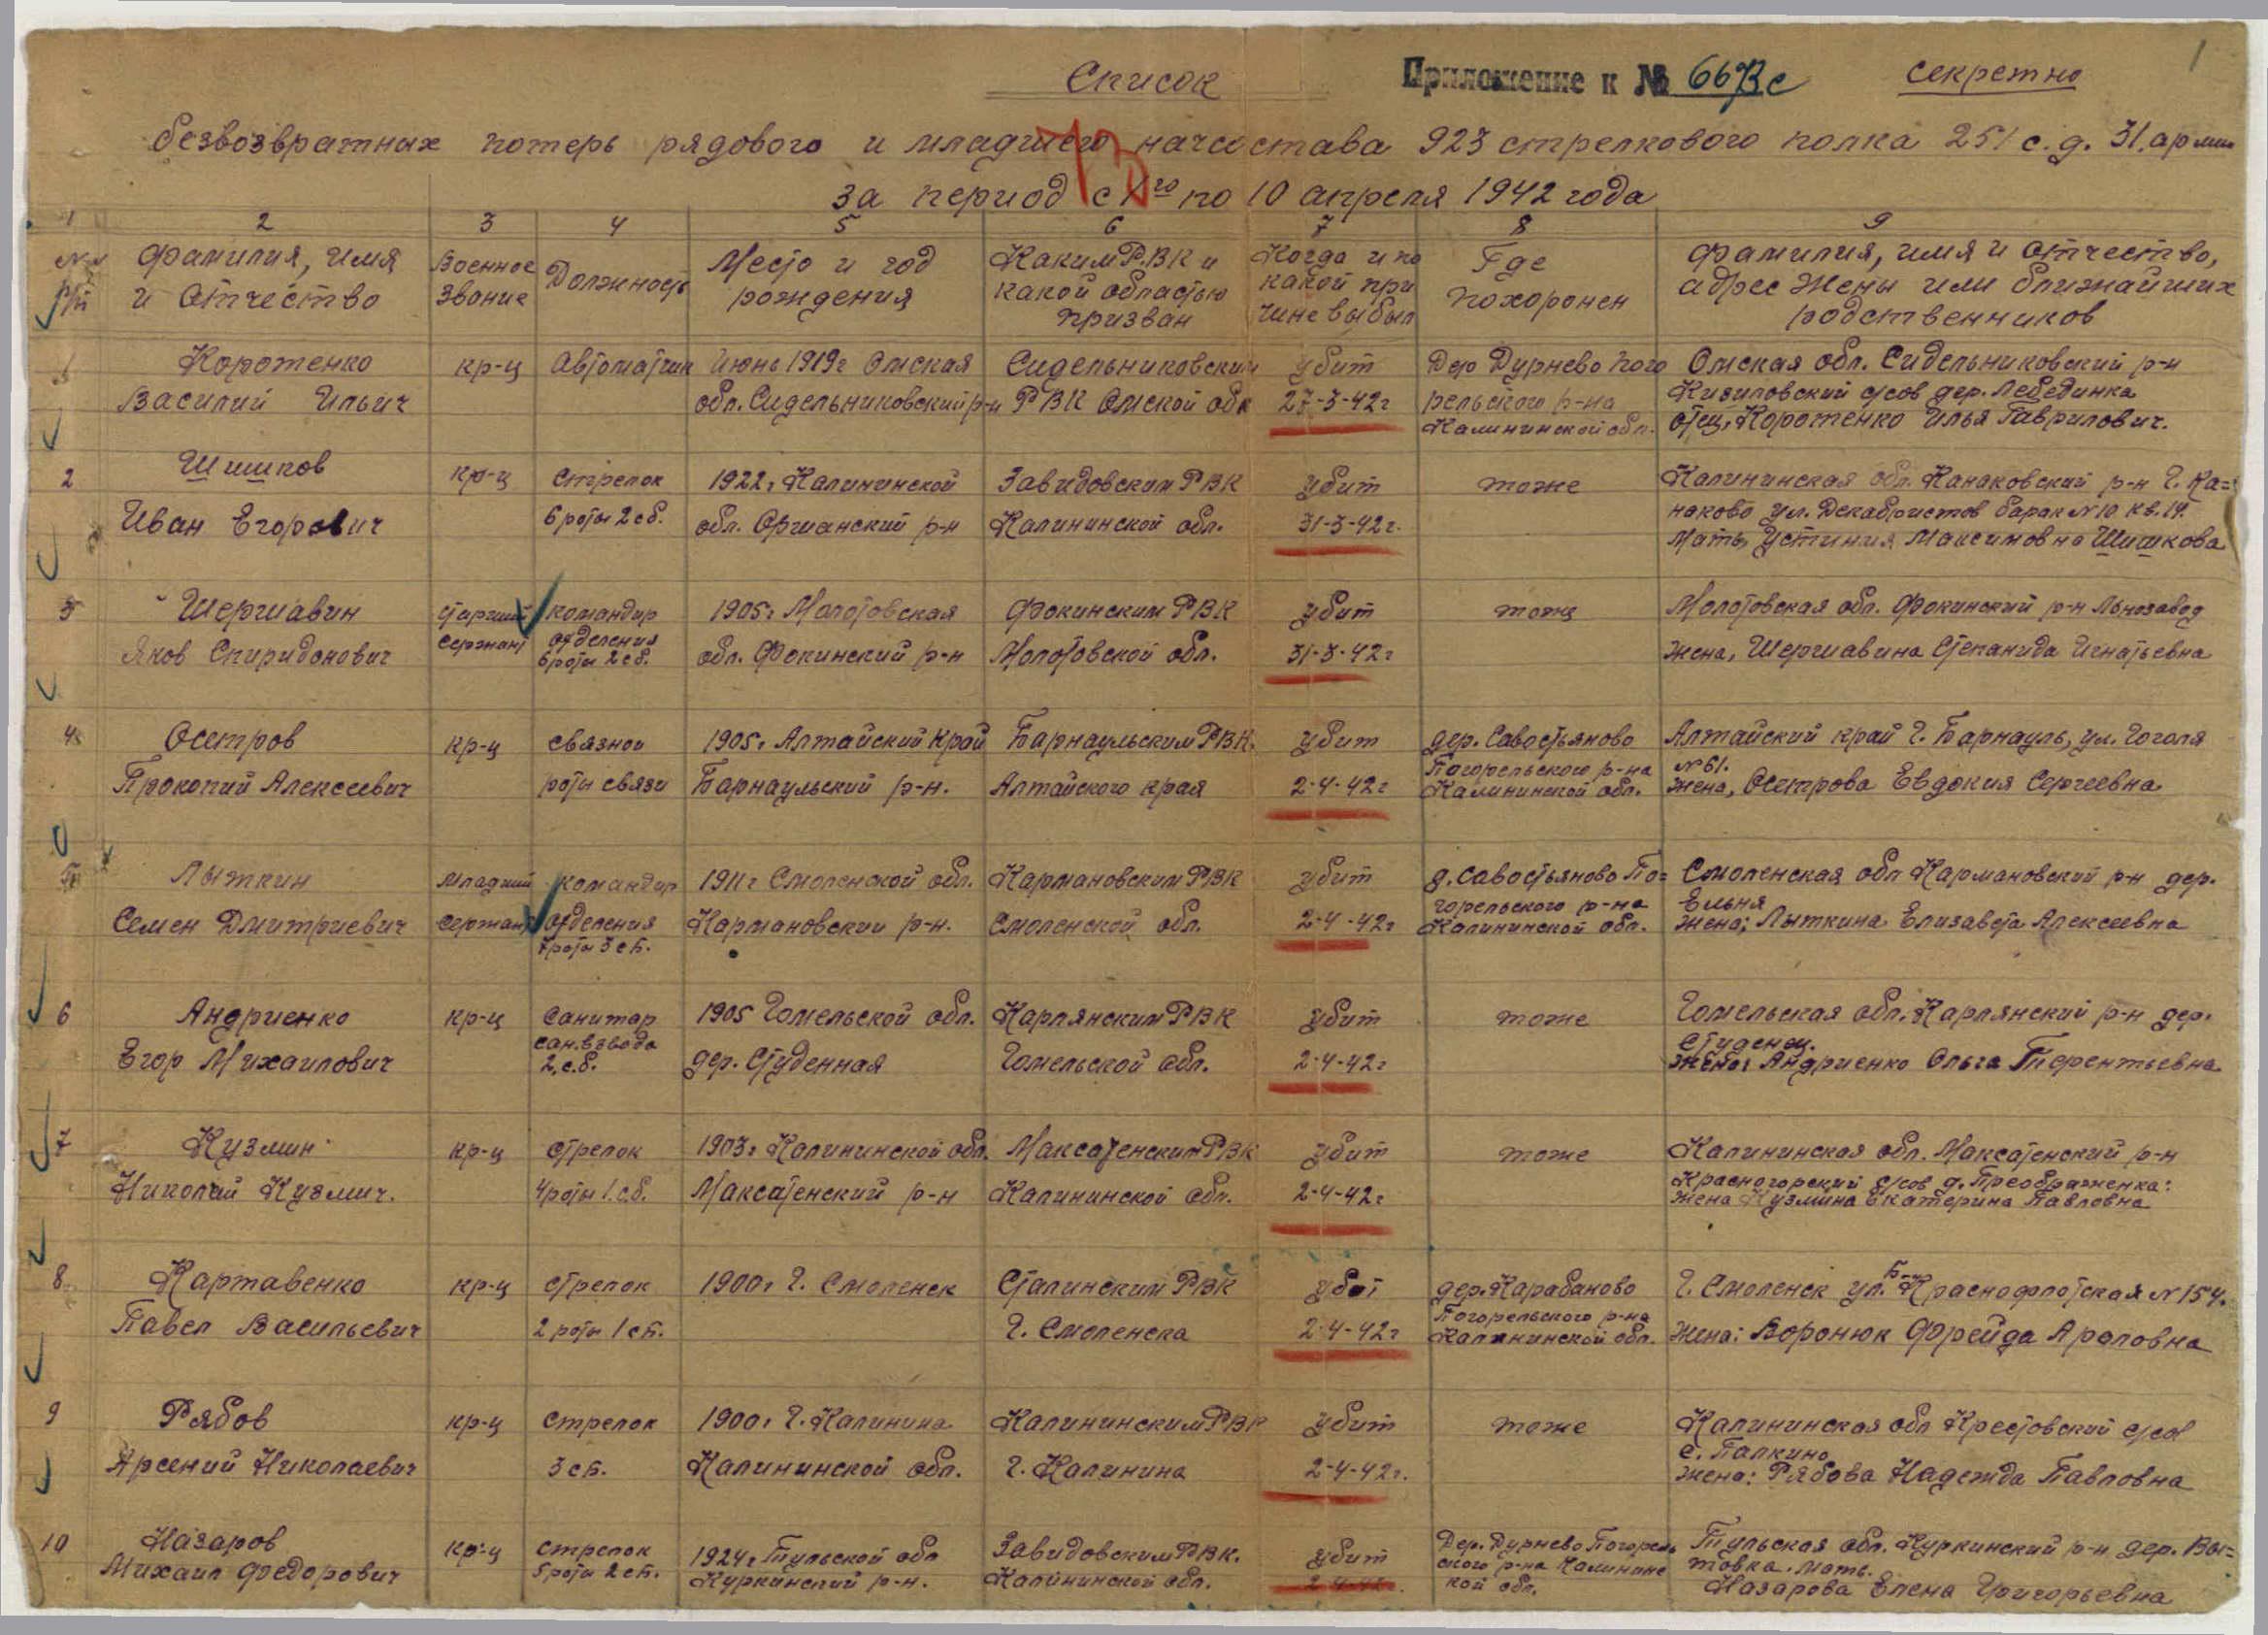 1
Список
Приложение к № 6673с
секретно
безвозвратных потерь рядового и младшего начсостава 923 стрелкового полка 251 с.д. 31 армии
за период с 1го по 10 апреля 1942 года
1 2 3 4 5 6 7 8 9
№№ п/п
Фамилия, имя
и отчество
Военное
звание
Должность
Место и год
рождения
Каким РВК и
какой областью
призван
Когда и по
какой при
чине выбыл
Где
похоронен
Фамилия, имя и отчество,
адрес жены или ближайших
родственников
Короженко
Василий Ильич
кр-ц
Автоматчик
Июнь 1919г Омская
обл. Сидельниковский р-н
Сидельниковским
РВК Омской обл
убит
27-3-42г
Дер Дурнево Пого
рельского р-на
Калининской обл.
Омская обл. Сидельниковский р-н
с/сов дер. Лебединка
отец, Короженко Илья Гаврилович.
2
Шишков
Иван Егорович
кр-ц
стрелок
6 роты 2 сб.
1922г Калининской
обл. Оршанский р-н
Завидовским РВК
Калининской обл.
убит
31-3-42г.
тоже
Калининская обл. Канаковский р-н г. Ка=
наково ул. Декабристов барак №10 кв. 19.
Мать, Устиния Максимовна Шишкова
3
Шершавин
Яков Спиридонович
старший
сержант
командир
отделения
6 роты 2 сб.
1905г Молотовская
обл. Фокинский р-н
Фокинским РВК
Молотовской обл.
убит
31-3-42г
тоже
Молотовская обл. Фокинский р-н Льнозавод
жена, Шершавина Степанида Игнатьевна
4
Осетров
Прокопий Алексеевич
кр-ц
связной
роты связи
1905г Алтайский край
Барнаульский р-н.
Барнаульским РВК.
Алтайского края
убит
2-4-42г
дер. Савостьяново
Погорельского р-на
Калининской обл.
Алтайский край г. Барнауль, ул. Гоголя
№61.
жена, Осетрова Евдокия Сергеевна
5
Лыткин
Семен Дмитриевич
младший
сержант
командир
отделения
7 роты 3 сб.
1911г Смоленской обл.
Кармановский р-н.
Кармановским РВК
Смоленской обл.
убит
2-4-42г
д. Савостьяново По=
горельского р-на
Калининской обл.
Смоленская обл Кармановский р-н дер.
Ельня
жена; Лыткина Елизавета Алексеевна
6
Андриенко
Егор Михаилович
кр-ц
санитар
сан. взвода
2 с.б.
1905 Гомельской обл.
дер. Студенная
Карпянским РВК
Гомельской обл.
убит
2-4-42г
тоже
Гомельская обл. Карпянский р-н дер.
жена: Андриенко Ольга Терентьевна
7
Кузмин
Николай Кузмич.
кр-ц
стрелок
4 роты 1 сб.
1903г Калининской обл.
Максатенский р-н
Максатенским РВК
Калининской обл.
убит
2-4-42г
тоже
Калининская обл. Максатенский р-н
Красногорский с/сов д. Преображенка:
жена Кузмина Екатерина Павловна
8
Картавенко
Павел Васильевич
кр-ц
стрелок
2 роты 1 сб.
1900г г. Смоленск
Сталинским РВК
г. Смоленска
убит
2-4-42г
дер. Карабаново
Погорельского р-на
Калининской обл.
г. Смоленск ул. Б- Краснофлотская №154.
жена: Воронюк Фрейда Ароловна
9
Рябов
Арсений Николаевич
кр-ц
стрелок
3 сб.
1900г г. Калинина
Калининской обл.
Калининским РВК
г. Калинина
убит
2-4-42г.
тоже
Калининская обл Крестовский с/сов
с. Палкино
жена: Рябова Надежда Павловна
10
Назаров
Михаил Федорович
кр-ц
стрелок
5 роты 2 сб.
1924г Тульской обл
Куркинский р-н.
Завидовским РВК.
Калининской обл.
убит
2-4-42г.
Дер. Дурнево Погорель
ского р-на Калининс
кой обл.
Тульская обл. Куркинский р-н дер. Вы=
товка. Мать.
Назарова Елена Григорьевна